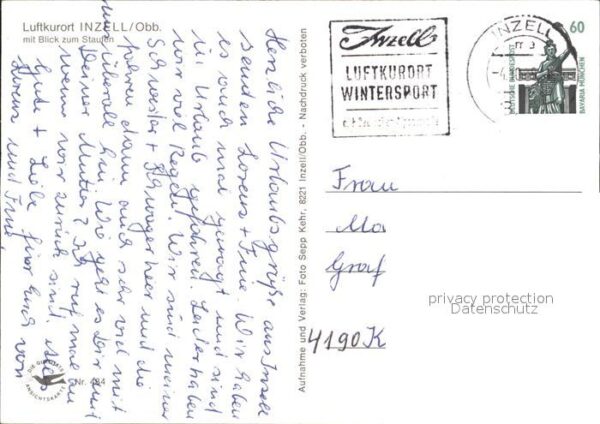 Luftkurort INZELL/Obb.
mit Blick zum Staufen
Herzliche Urlaubsgrüße aus Inzell
senden Lorenz + Wir haben
es auch mal gewagt und sind
in Urlaub gefahren. Leider haben
wir viel Regen. Wir sind meiner
Schwester + Schwager hier und die
fahren dann auch sehr viel mit
uns überall hin. Wie geht es Dir und
Deiner Mutter? Ich ruf mal an
wenn wir zurück sind. Alles
Gute + Liebe für Euch von
Lorenz und
DIE GUTE
ANSICHTSKARTE
Nr. 494
Aufnahme und Verlag: Foto Sepp Kehr, 8221 Inzell/Obb. - Nachdruck verboten
Inzell
LUFTKURORT
WINTERSPORT
INZELL
60
DEUTSCHE BUNDESPOST
BAVARIA MÜNCHEN
Frau
Ma
Graf
4190 K
privacy protection
Datenschutz